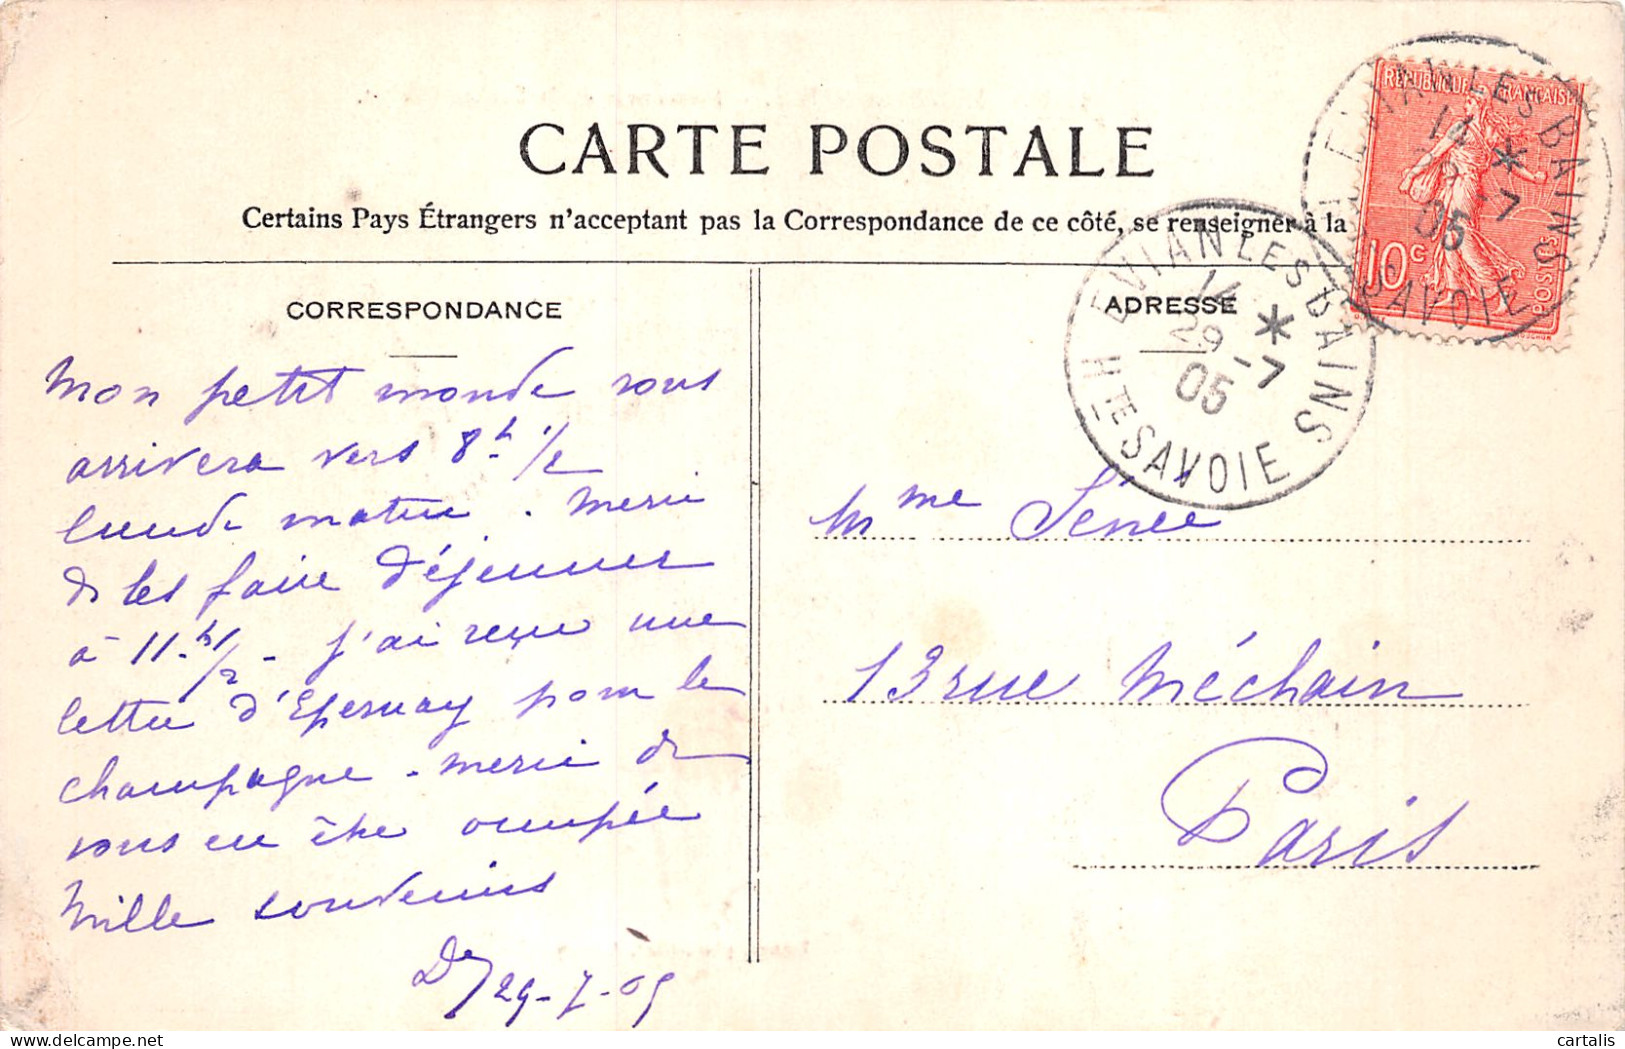 CARTE POSTALE
Certains Pays Étrangers n'acceptant pas la Correspondance de ce côté, se renseigner à la
CORRESPONDANCE
Mon petit monde vous
arrivera vers 8h 1/2
lundi matin. Merci
de les faire déjeuner
à 11h 1/2 - J'ai reçu une
lettre d'Epernay pour le
champagne. merci de
vous en être occupée
Mille souvenirs
29-7-05
ADRESSE
Mme Sénée
13 rue Méchain
Paris
EVIAN LES BAINS
14 *
29 -7
05
HTE SAVOIE
EVIAN LES BAINS
14 *
29 -7
05
SAVOIE
REPUBLIQUE FRANÇAISE
10c
POSTES
cartalis
delcampe.net